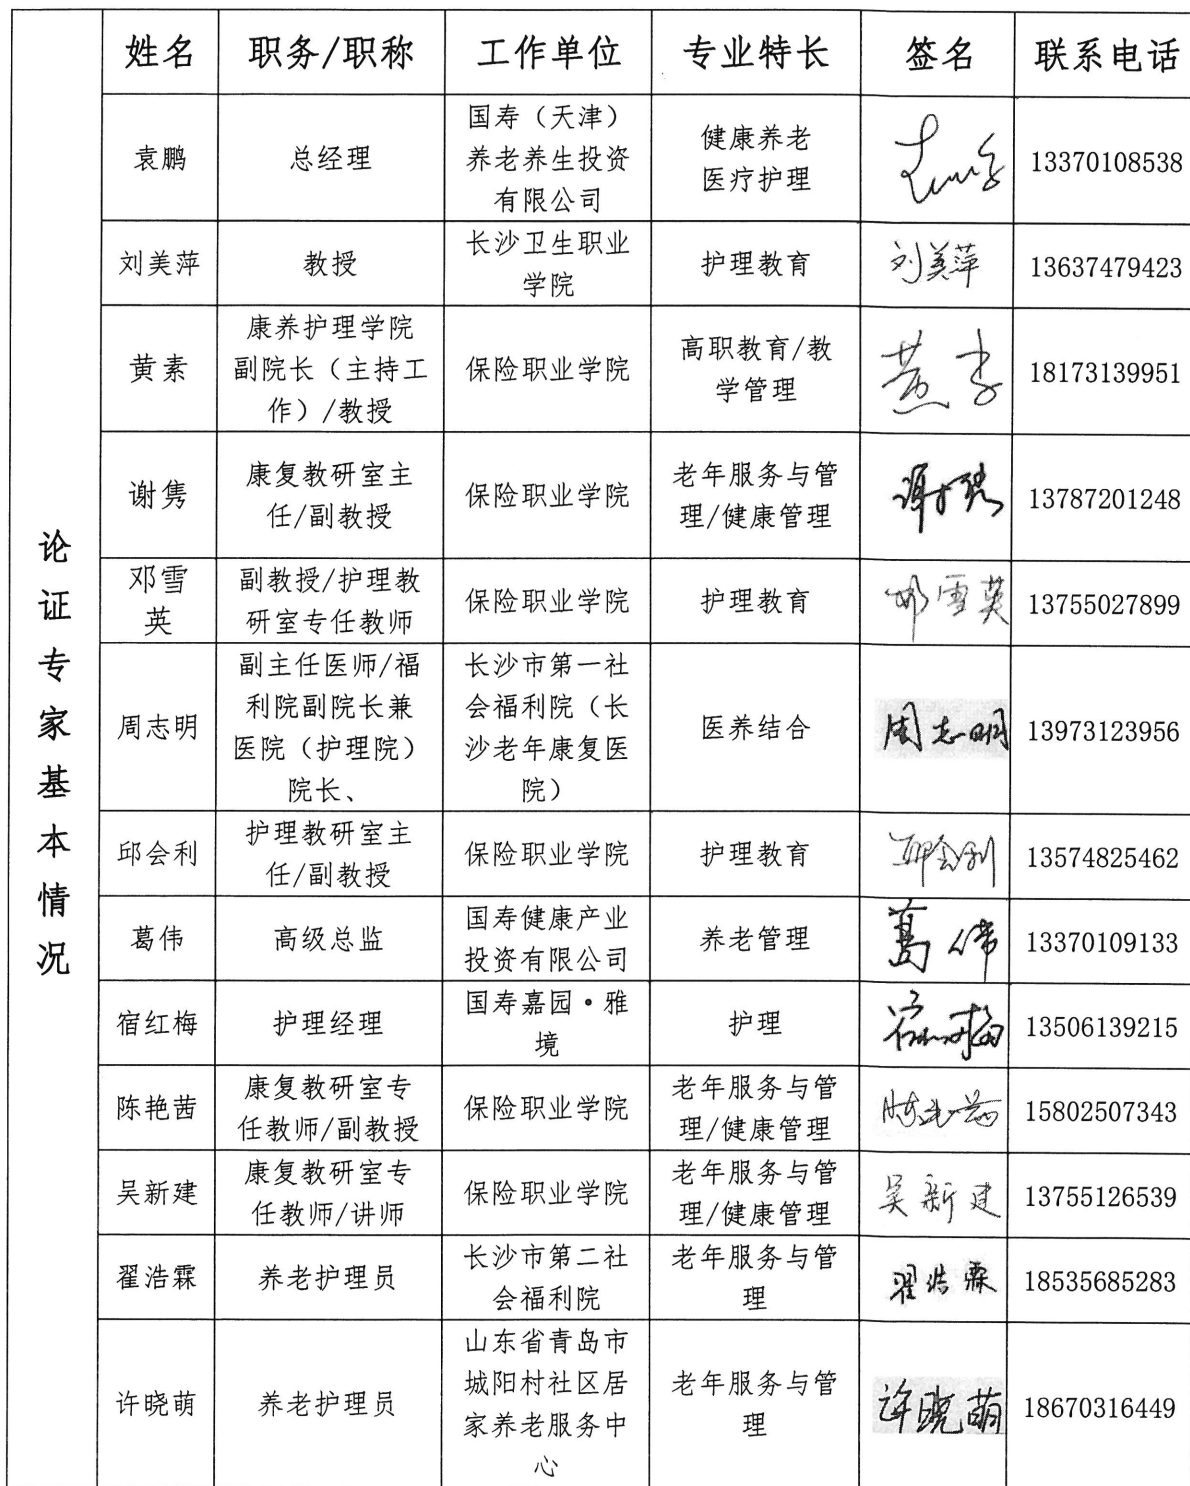 论证专家基本情况
姓名 职务/职称 工作单位 专业特长 签名 联系电话
袁鹏 总经理 国寿（天津）
养老养生投资
有限公司 健康养老
医疗护理 13370108538
刘美萍 教授 长沙卫生职业
学院 护理教育 刘美萍 13637479423
黄素 康养护理学院
副院长（主持工
作）/教授 保险职业学院 高职教育/教
学管理 黄素 18173139951
谢隽 康复教研室主
任/副教授 保险职业学院 老年服务与管
理/健康管理 谢隽 13787201248
邓雪
英 副教授/护理教
研室专任教师 保险职业学院 护理教育 邓雪英 13755027899
周志明 副主任医师/福
利院副院长兼
医院（护理院）
院长、 长沙市第一社
会福利院（长
沙老年康复医
院） 医养结合 周志明 13973123956
邱会利 护理教研室主
任/副教授 保险职业学院 护理教育 邱会利 13574825462
葛伟 高级总监 国寿健康产业
投资有限公司 养老管理 葛伟 13370109133
宿红梅 护理经理 国寿嘉园·雅
境 护理 宿红梅 13506139215
陈艳茜 康复教研室专
任教师/副教授 保险职业学院 老年服务与管
理/健康管理 陈艳茜 15802507343
吴新建 康复教研室专
任教师/讲师 保险职业学院 老年服务与管
理/健康管理 吴新建 13755126539
翟浩霖 养老护理员 长沙市第二社
会福利院 老年服务与管
理 翟浩霖 18535685283
许晓萌 养老护理员 山东省青岛市
城阳村社区居
家养老服务中
心 老年服务与管
理 许晓萌 18670316449